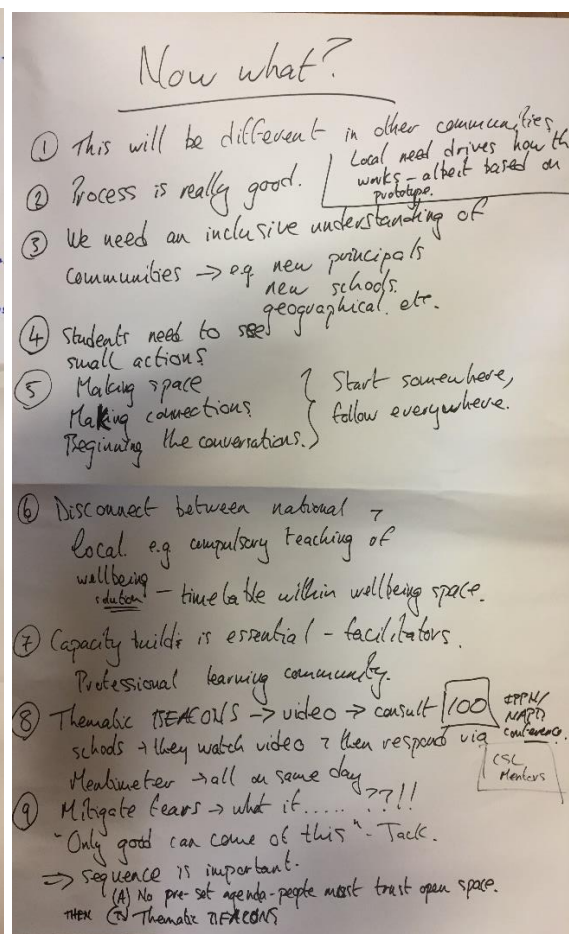 Now what?
① This will be different in other communities
② Process is really good.
Local need drives how th
works - albeit based on
prototype.
③ We need an inclusive understanding of
communities → e.g new principals
new schools.
geographical. etc.
④ Students need to see
small actions
⑤ Making space
Making connections
Beginning the conversations.
Start somewhere,
follow everywhere.
⑥ Disconnect between national &
local. e.g compulsory teaching of
wellbeing
solution - timetable within wellbeing space.
⑦ Capacity build: is essential - facilitators.
Professional learning community.
⑧ Thematic BEACONS → video → consult 100
schools → they watch video & then respond via
IPPN/
NAPD
conference.
Mentimeter → all on same day
CSL
Mentors
⑨ Mitigate fears → what if.....??!!
"Only good can come of this" - Jack.
⇒ sequence is important.
(A) No pre-set agenda - people must trust open space.
THEN (B) Thematic BEACONS